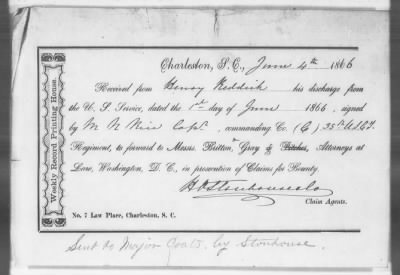 Weekly Record Printing House.
Charleston, S. C., June 4th 1866
Received from Henry Reddick his discharge from
the U. S. Service, dated the 1st day of June 1866, signed
by M N Rice Capt., commanding Co. (G) 35th U.S.C.T.
Regiment, to forward to Messrs. Britton, Gray & Attorneys at
Law, Washington, D. C., in prosecution of Claims for Bounty.
Stonhouse & Co
Claim Agents.
No. 7 Law Place, Charleston, S. C.
Sent to Major Coats. by Stonhouse.